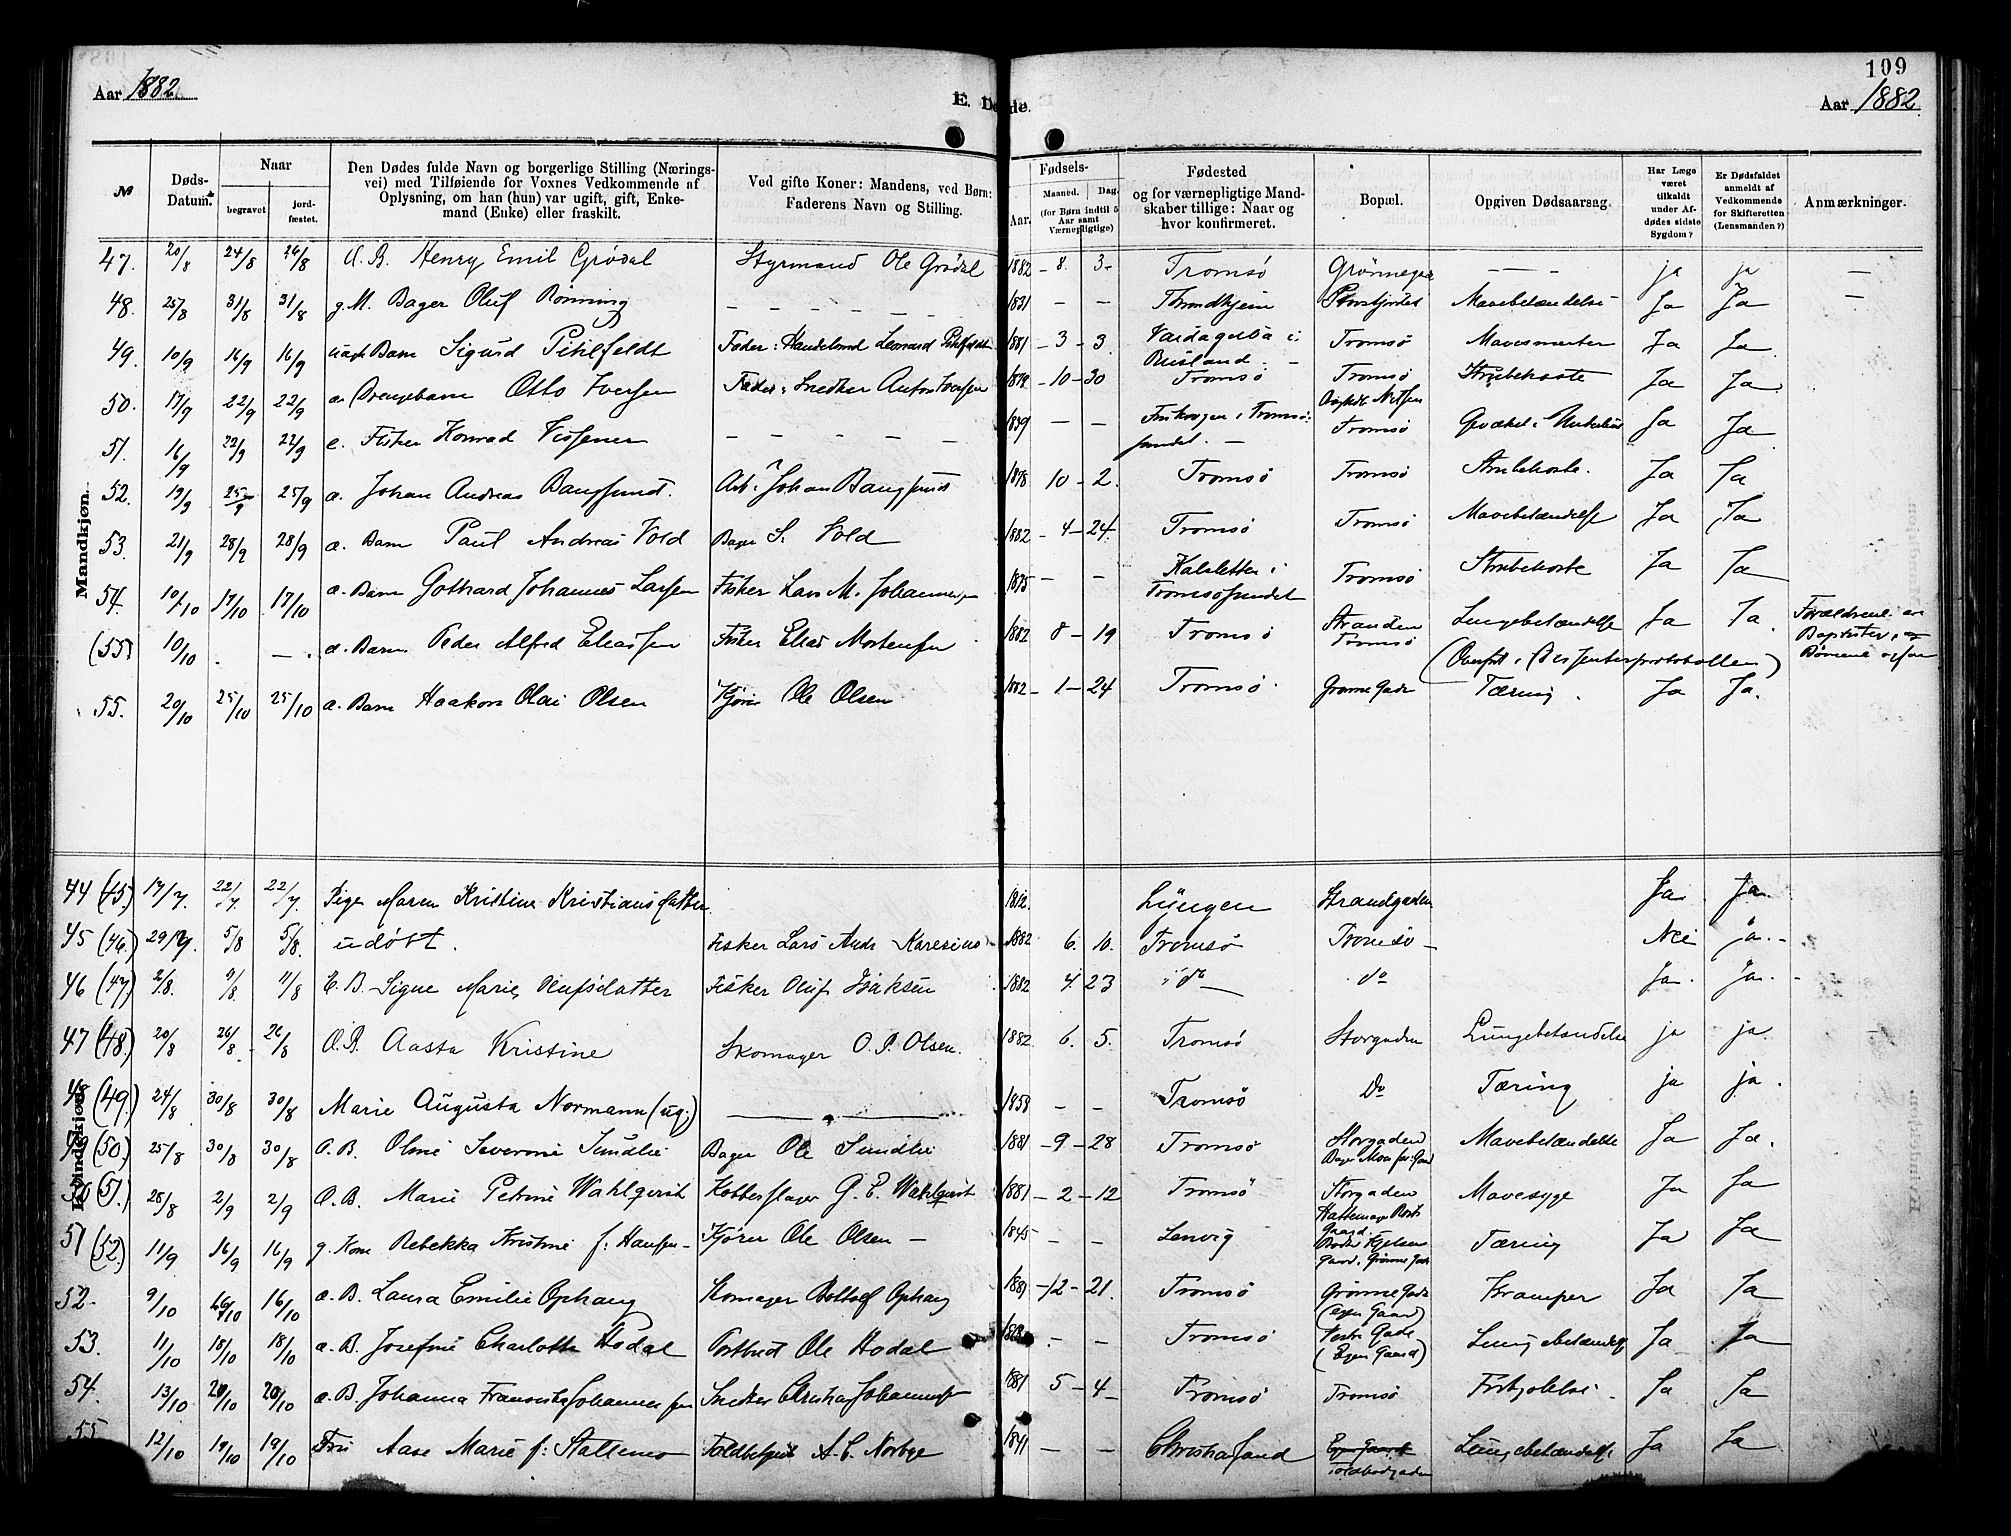 109
Aar 1882
E. Døde.
Aar 1882
№
Døds-Datum.
Naar
begravet
jordfæstet.
Den Dødes fulde Navn og borgerlige Stilling (Nærings-
vei) med Tilføiende for Voxnes Vedkommende af
Oplysning, om han (hun) var ugift, gift, Enke-
mand (Enke) eller fraskilt.
Ved gifte Koner: Mandens, ved Børn:
Faderens Navn og Stilling.
Fødsels-
Aar.
Maaned.
Dag.
(for Børn indtil 5
Aar samt
Værnepligtige)
Fødested
og for værnepligtige Mand-
skaber tillige: Naar og
hvor konfirmeret.
Bopæl.
Opgiven Dødsaarsag.
Har Læge
været
tilkaldt
under Af-
dødes sidste
Sygdom?
Er Dødsfaldet
anmeldt af
Vedkommende
for Skifteretten
(Lensmanden?)
Anmærkninger.
Mandkjøn.
47. 20/8 24/8 26/8 U. B. Henry Emil Grødal Styrmand Ole Grødal 1882 – 8. 3 – Tromsø – – – ja ja –
48. 25/8 31/8 31/8 g. M. Bager Oluf Rønning – – – – – – 1831 – – Throndhjem Mavebetændelse Ja Ja –
49. 10/9 16/9 16/9 Barn Sigurd Pihlfeldt Fader: Leonard Pihlfeldt 1881 – 3 – 3 i Rusland. – Tromsø Mavesmerter Ja Ja
50. 17/9 22/9 22/9 a. Drengebarn Otto Iversen Fader: Snedker Anton Iversen 1879 – 10 – 30 Tromsø Tromsø Strubehoste Ja Ja
51. 16/9 22/9 22/9 e. Fisker Konrad – – – – – 1839 – – i Tromsø-
sundet. – Tromsø Ja Ja
52. 19/9 25/9 25/9 a. Johan Andreas Bangsund. Arb. Johan Bangsund 1878 10 – 2. Tromsø Tromsø Strubehoste. Ja Ja
53. 21/9 28/9 28/9 a. Barn Paul Andreas Vold Bager S. Vold 1882 – 4 – 24 Tromsø Tromsø Mavebetændelse Ja Ja
54. 10/10 17/10 17/10 a. Barn Gothard Johannes Larsen Fisker Lars M. Johannessen 1875 – – i
Tromsøsundet Tromsø Strubehoste Ja Ja
(55) 10/10 . – . a. Barn Peder Alfred Eliassen Fisker Elias Mortensen 1882 8 – 19 Tromsø Stranden
Tromsø Lungebetændelse Ja Ja. Forældrene er
Baptister, og
Børnene
(Overført i Dissenterprotokollen)
55. 20/10 25/10 25/10 a. Barn Haakon Olai Olsen Kjører Ole Olsen 1882 – 1 – 24 Tromsø. Grønne Gade Tæring. Ja Ja.
Kvindekjøn.
44 (45) 17/7. 22/7 22/7 Pige Maren Kristine Kristiansdatter. 1812. Lyngen Strandgaden Ja Ja
45 (46.) 29/7. 5/8 5/8. udøbt. Fisker Lars Andr. Karezius 1882 6. 10. Tromsø Tromsø – Nei ja. –
46 (47) 2/8. 11/8 E. B. Signe Marie, Olufsdatter Fisker Oluf Isaksen 1882 4. 23 do – do Ja. Ja. –
47 (48.) 20/8 26/8 26/8 U. B. Aasta Kristine Skomager O. P. Olsen. 1882 6. 5. Tromsø Storgaden Lungebetændelse ja ja.
48 (49.) 24/8 30/8 30/8 Marie Augusta Normann (ug.) 1858 – – Tromsø Do Tæring ja ja.
49 (50) 25/8 30/8 30/8 Æ. B. Oline Severine Sundlie Bager Ole Sundlie 1881 – 9 – 28 Tromsø Storgaden Mavebetændelse Ja Ja.
50 (51). 28/8 2/9 2/9 Æ. B. Marie Petrine Wahlqvist Kobberslager G. E. Wahlqvist 1881 – 2 – 12 Tromsø Storgaden Mavesyge Ja Ja
51 (52.) 11/9 16/9 16/9 g. Kone Rebekka Kristine f: Hansen – Kjører Ole Olsen – 1845 – – Lenvig Gaard, Grønne Gade Tæring Ja Ja
52. 9/10 16/10 16/10 a. B. Laura Emilie Ophaug Skomager Ophaug – 12 – 21. Tromsø Grønne Gade
(egen Gaard) Kramper Ja Ja
53. 11/10 18/10 18/10 a. B. Josefine Charlotte Hodal Postbud Ole Hodal – – Tromsø Vestre Gade
(Egen Gaard) Lungebetændelse Ja Ja
54. 13/10 20/10 20/10 a. B. Johanna Johannessen Snedker Johannessen 1881 5 – 4 – Tromsø Tromsø Forkjølelse. Ja Ja
55 12/10 19/10 19/10 Fru Aase Marie f: Stallemo Toldbetjent A. C. Norbye 1841 – – Christiansand Egen Gaard
Toldbodgaden Lungebetændelse Ja Ja